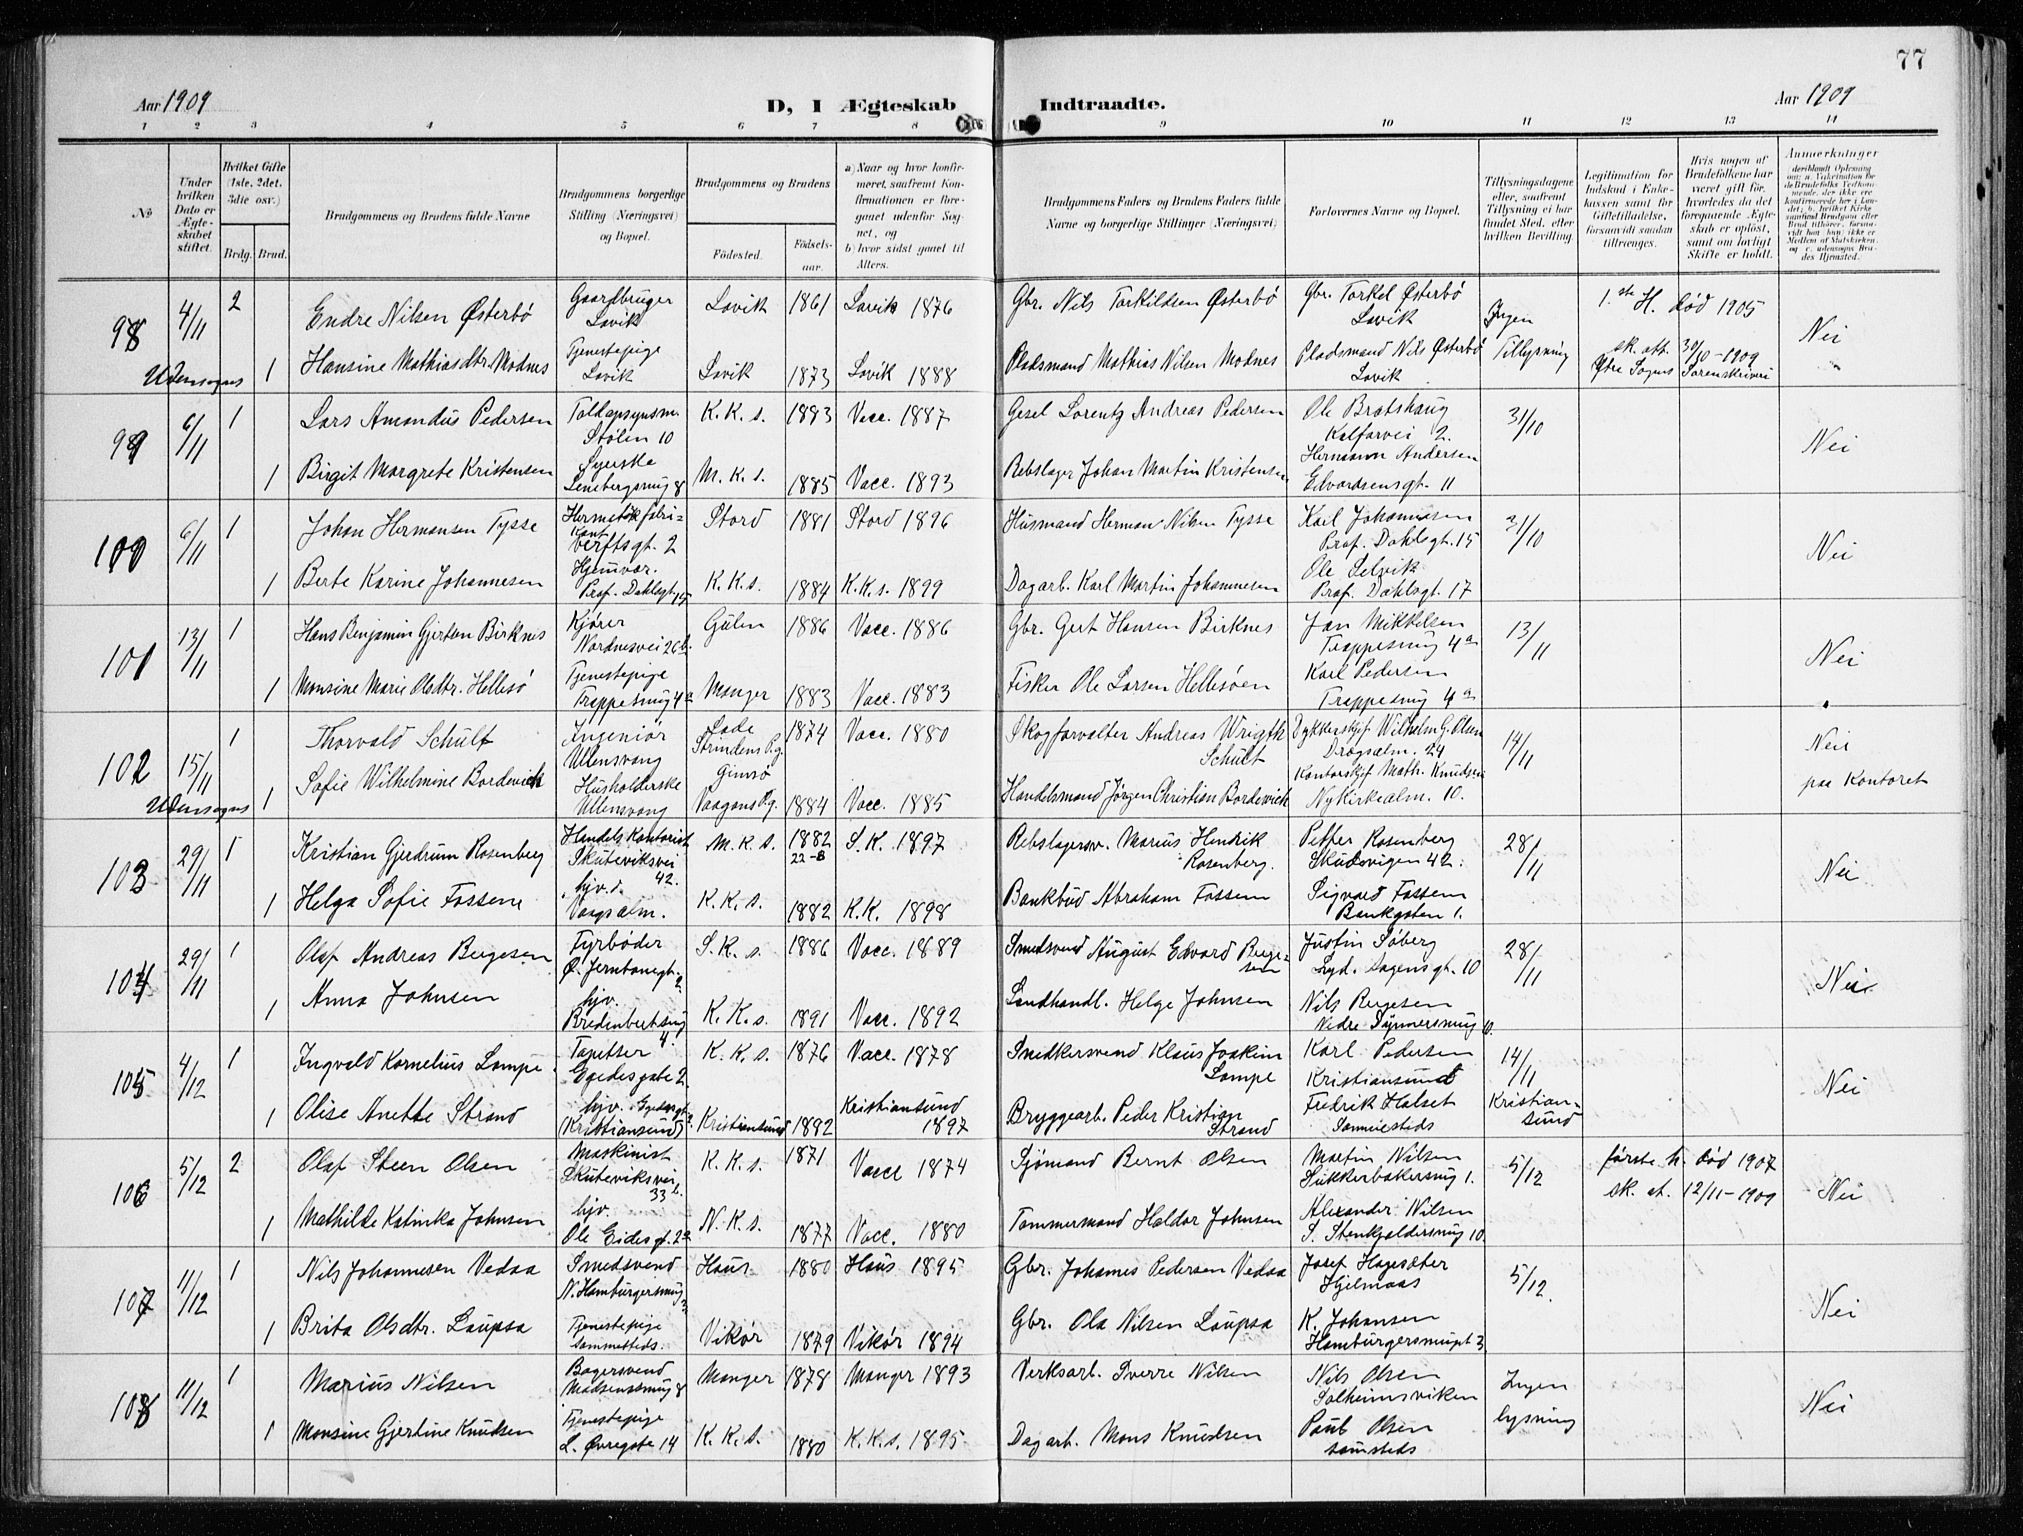 77
Aar 1909
D, I Ægteskab Indtraadte.
Aar 1909
1 2 3 4 5 6 7 8 9 10 11 12 13 14
No
Under hvilken Dato er Ægteskabet stiftet.
Hvilket Gifte (1ste, 2det, 3die osv.)
Brdg. Brud.
Brudgommens og Brudens fulde Navne
Brudgommens borgerlige Stilling (Næringsvei) og Bopæl.
Brudgommens og Brudens
Födested.
Födsels-aar.
a) Naar og hvor konfirmeret, saafremt Konfirmationen er foregaaet udenfor Sognet, og
b) hvor sidst gaaet til Alters.
Brudgommens Faders og Brudens Faders fulde Navne og borgerlige Stillinger (Næringsvei)
Forlovernes Navne og Bopæl.
Tillysningsdagene eller, saafremt Tillysning ei har fundet Sted, efter hvilken Bevilling.
Legitimation for Indskud i Enkekassen samt for Giftetilladelse, forsaavidt saadan tiltrænges.
Hvis nogen af Brudefolkene har været gift før, hvorledes da det foregaaende Ægteskab er oplöst, samt om lovligt Skifte er holdt.
Anmerkninger
98 4/11 2 Endre Nilsen Østerbö Gaardbruger Lavik Lavik 1861 Lavik 1876 Gbr. Nils Torkildsen Østerbö Gbr. Torkel Østerbö Lavik Ingen Tillysning 1.ste H. död 1905 Nei
Udensogns 1 Hansine Mathiasdtr. Modnes Tjenestepige Lavik Lavik 1873 Lavik 1888 Pladsmand Mathias Nilsen Modnes Pladsmand Nils Østerbö Lavik sk. att. 30/10-1909 Ytre Sogns Sorenskriveri
99 6/11 1 Lars Amandus Pedersen Toldopsynsm. Stølen 10 K. K. s. 1883 Vacc. 1887 Gesel Lorentz Andreas Pedersen Ole Bratshaug Kalfarvei 2. 31/10 Nei
1 Birgit Margrete Kristensen Syerske Lensbergsmug 8 M. K. s. 1885 Vacc. 1893 Rebslager Johan Martin Kristensen Hermann Andersen Edvardsensgt. 11
100 6/11 1 Johan Hermansen Tysse Hermetikfabrikant Verftsgt. 2 Stord 1881 Stord 1896 Husmand Herman Nilsen Tysse Karl Johannesen Prof. Dahlsgt. 15 31/10 Nei
1 Berte Karine Johannesen Hjemvær. Prof. Dahlsgt. 15 K. K. s. 1884 K. K. s. 1899 Dagarb. Karl Martin Johannesen Ole Selvik Prof. Dahlsgt. 17
101 13/11 1 Hans Benjamin Gjertsen Birknes Kjører Nordnesvei 26 b. Gulen 1886 Vacc. 1886 Gbr. Gert Hansen Birknes Jan Mikkelsen Trappesmug 4 a 13/11 Nei
1 Monsine Marie Olsdtr. Hellesö Tjenestepige Trappesmug 4 a Manger 1883 Vacc. 1883 Fisker Ole Larsen Hellesøen Karl Pedersen Trappesmug 4 a
102 15/11 1 Thorvald Schult Ingeniør Ullensvang Lade Strindens Pg. 1874 Vacc. 1880 Skogforvalter Andreas Wrigth Schult Dykkerskjef Wilhelm G. Olsen Dragsalm. 24 14/11 Nei paa Kontoret
Udensogns 1 Sofie Wilhelmine Bordewick Husholderske Ullensvang Gimsö Vaagans Pg. 1884 Vacc. 1885 Handelsmand Jörgen Christian Bordewick Kontorskjef Math. Knudsen Nykirkealm. 10.
103 29/11 1 Kristian Gjerdrum Rosenberg Handelskontorist Skuteviksvei 42. M. K. s. 1882 22-8 S. K. 1897 Rebslagersv. Marius Hendrik Rosenberg. Petter Rosenberg Skudevigen 42. 28/11 Nei
1 Helga Sofie Fossene hjv. d. Vaagsalm. K. K. s. 1882 K. K. 1898 Bankbud Abraham Fossem Sigvald Fossem Bankgaten 1.
104 29/11 1 Olaf Andreas Bergesen Fyrböder Ø. Jernbanegt. 2 S. K. s. 1886 Vacc. 1889 Smedsvend August Edvard Bergesen Justin Söberg Lyd. Sagensgt. 10 28/11 Nei
1 Anna Johnsen hjv. Bredenbertsmug 4. K. K. s. 1891 Vacc. 1892 Landhandl. Helge Johnsen Nils Bergesen Nedre Synnersmug 10.
105 4/12 1 Ingvald Kornelius Lampe Tapitser Egedesgate 2. K. K. s. 1876 Vacc. 1878 Snedkersvend Klaus Joakim Lampe Karl Pedersen Kristiansund 14/11 Kristiansund Nei
1 Olise Anette Strand hjv. Egedesgt. 2 (Kristiansund) Kristiansund 1892 Kristiansund 1897 Bryggearb. Peder Kristian Strand Fredrik Halset Sammesteds
106 5/12 2 Olaf Steen Olsen Maskinist Skuteviksvei 33 b. K. K. s. 1871 Vacc 1874 Sjömand Bernt Olsen Martin Nilsen Sukkerbakersmug 1. 5/12 förste h. död 1907 sk. at. 12/11-1909 Nei
1 Mathilde Katinka Johnsen hjv. Ole Eidesgt. 2 a N. K. s. 1877 Vacc. 1880 Tømmermand Haldor Johnsen Alexander Nilsen S. Stenkjeldersmug 10
107 11/12 1 Nils Johannesen Vedaa Smedsvend N. Hamburgersmug 3 Haus 1880 Haus 1895 Gbr. Johannes Pedersen Vedaa Josef Hagesæter Hjelmaas 5/12. Nei
1 Brita Olsdtr. Laupsa Tjenestepige sammesteds. Vikør 1879 Vikør 1894 Gbr. Ola Nilsen Laupsa K. Johansen Hamburgersmuget 3
108 11/12 1 Marius Nilsen Bagersvend Madsenssmug 8 Manger 1878 Manger 1893 Verksarb. Sverre Nilsen Nils Olsen Solheimsviken Ingen lysning Nei
1 Monsine Gjertine Knudsen Tjenestepige L. Øvregate 14 K. K. s. 1880 K. K. s. 1895 Dagarb. Mons Knudsen Paul Olsen samsteds